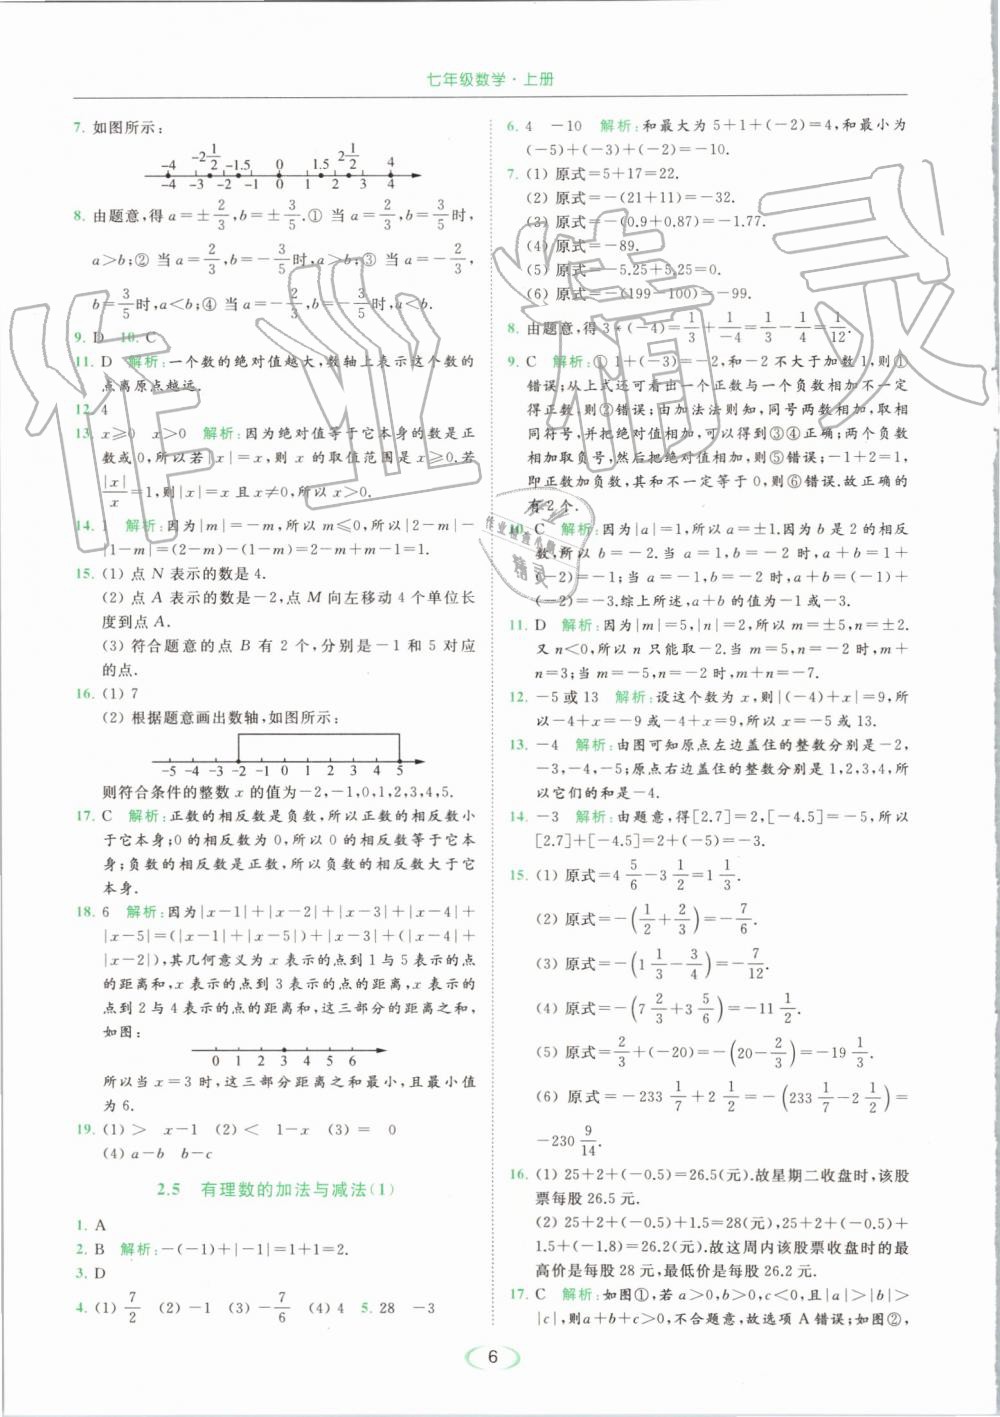 七年级数学·上册
7. 如图所示:
-4 -2 1/2 -1.5 0 1.5 2 1/2 4
-4 -3 -2 -1 0 1 2 3 4
8. 由题意,得a=±2/3,b=±3/5.① 当a=2/3,b=3/5时,
a>b;② 当a=2/3,b=-3/5时,a>b;③ 当a=-2/3,
b=3/5时,a<b;④ 当a=-2/3,b=-3/5时,a<b.
9. D 10. C
11. D 解析:一个数的绝对值越大,数轴上表示这个数的
点离原点越远.
12. 4
13. x≥0 x>0 解析:因为绝对值等于它本身的数是正
数或0,所以若|x|=x,则x的取值范围是x≥0.若
|x|/x=1,则|x|=x且x≠0,所以x>0.
14. 1 解析:因为|m|=-m,所以m≤0,所以|2-m|-
|1-m|=(2-m)-(1-m)=2-m+m-1=1.
15. (1) 点N表示的数是4.
(2) 点A表示的数是-2,点M向左移动4个单位长
度到点A.
(3) 符合题意的点B有2个,分别是-1和5对应
的点.
16. (1) 7
(2) 根据题意画出数轴,如图所示:
-5 -4 -3 -2 -1 0 1 2 3 4 5
则符合条件的整数x的值为-2,-1,0,1,2,3,4,5.
17. C 解析:正数的相反数是负数,所以正数的相反数小
于它本身;0的相反数为0,所以0的相反数等于它本
身;负数的相反数是正数,所以负数的相反数大于它
本身.
18. 6 解析:因为|x-1|+|x-2|+|x-3|+|x-4|+
|x-5|=(|x-1|+|x-5|)+|x-3|+(|x-4|+
|x-2|),其几何意义为x表示的点到1与5表示的点
的距离和,x表示的点到3表示的点的距离,x表示的
点到2与4表示的点的距离和,这三部分的距离之和,
如图:
0 1 2 3 4 5 6
所以当x=3时,这三部分距离之和最小,且最小值
为6.
19. (1) > x-1 (2) < 1-x (3) = 0
(4) a-b b-c
2.5 有理数的加法与减法(1)
1. A
2. B 解析:-(-1)+|-1|=1+1=2.
3. D
4. (1) 7/2 (2) -1 (3) -7/6 (4) 4 5. 28 -3
6. 4 -10 解析:和最大为5+1+(-2)=4,和最小为
(-5)+(-3)+(-2)=-10.
7. (1) 原式=5+17=22.
(2) 原式=-(21+11)=-32.
(3) 原式=-(0.9+0.87)=-1.77.
(4) 原式=-89.
(5) 原式=-5.25+5.25=0.
(6) 原式=-(199-100)=-99.
8. 由题意,得3*(-4)=1/3+1/-4=1/3-1/4=1/12.
9. C 解析:① 1+(-3)=-2,和-2不大于加数1,则①
错误;从上式还可看出一个正数与一个负数相加不一定
得正数,则②错误;由加法法则知,同号两数相加,取相
同符号,并把绝对值相加,可以得到③④正确;两个负数
相加取负号,然后把绝对值相加,则⑤错误;-1+2=1,
即正数加负数,其和不一定等于0,则⑥错误.故正确的
有2个.
10. C 解析:因为|a|=1,所以a=±1.因为b是2的相反
数,所以b=-2.当a=1,b=-2时,a+b=1+
(-2)=-1;当a=-1,b=-2时,a+b=(-1)+
(-2)=-3.综上所述,a+b的值为-1或-3.
11. D 解析:因为|m|=5,|n|=2,所以m=±5,n=±2.
又n<0,所以n只能取-2.当m=5,n=-2时,m+
n=3;当m=-5,n=-2时,m+n=-7.
12. -5或13 解析:设这个数为x,则|(-4)+x|=9,所
以-4+x=-9或-4+x=9,所以x=-5或13.
13. -4 解析:由图可知原点左边盖住的整数分别是-2,
-3,-4,-5;原点右边盖住的整数分别是1,2,3,4,所
以它们的和是-4.
14. -3 解析:由题意,得[2.7]=2,[-4.5]=-5,所以
[2.7]+[-4.5]=2+(-5)=-3.
15. (1) 原式=4 5/6-3 1/2=1 1/3.
(2) 原式=-(1/2+2/3)=-7/6.
(3) 原式=-(1 1/3-3/4)=-7/12.
(4) 原式=-(7 2/3+3 5/6)=-11 1/2.
(5) 原式=2/3+(-20)=-(20-2/3)=-19 1/3.
(6) 原式=-233 1/7+2 1/2=-(233 1/7-2 1/2)=
-230 9/14.
16. (1) 25+2+(-0.5)=26.5(元).故星期二收盘时,该股
票每股26.5元.
(2) 25+2+(-0.5)+1.5=28(元),25+2+(-0.5)+
1.5+(-1.8)=26.2(元).故这周内该股票收盘时的最
高价是每股28元,最低价是每股26.2元.
17. C 解析:如图①,若a>0,b>0,c<0,且|a|>|b|>
|c|,则a+b+c>0,不合题意,故选项A错误;如图②,
6
作业精灵